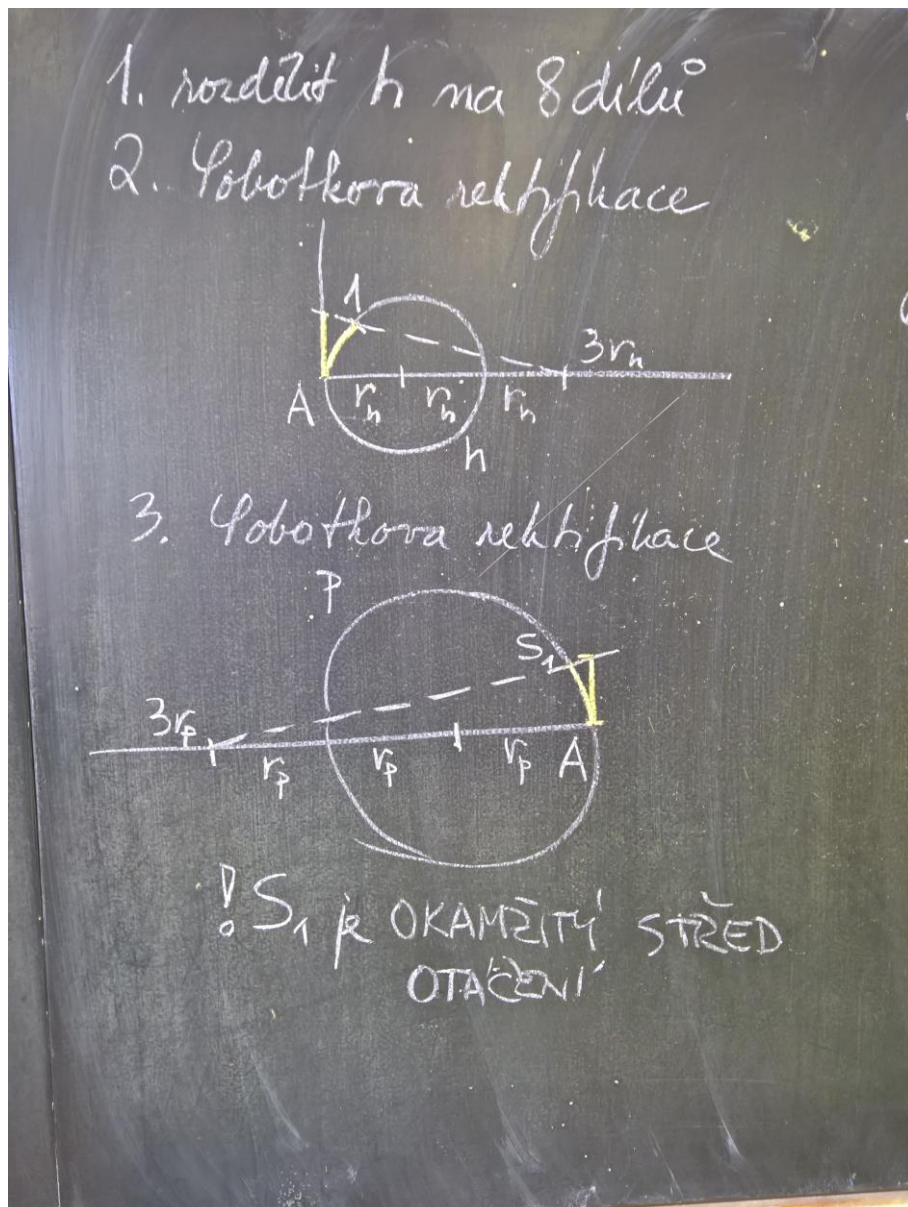 1. rozdělit h na 8 dílů
2. Sobotkova rektifikace
1
3rₕ
A rₕ rₕ rₕ
h
3. Sobotkova rektifikace
p
S₁
3rₚ
rₚ rₚ rₚ A
! S₁ je OKAMŽITÝ STŘED
OTÁČENÍ